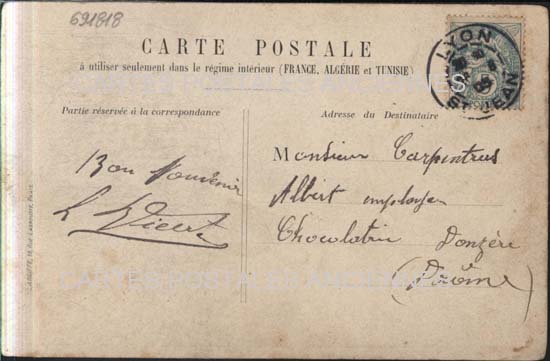 691818
CARTE POSTALE
à utiliser seulement dans le régime intérieur (FRANCE, ALGÉRIE et TUNISIE)
CARTES POSTALES ANCIENNES
LYON
ST JEAN
Partie réservée à la correspondance
Adresse du Destinataire
Bon Souvenir
Monsieur Carpentras
Albert employé
Chocolatrie Donzère
(Drôme)
CARTES POSTALES ANCIENNES